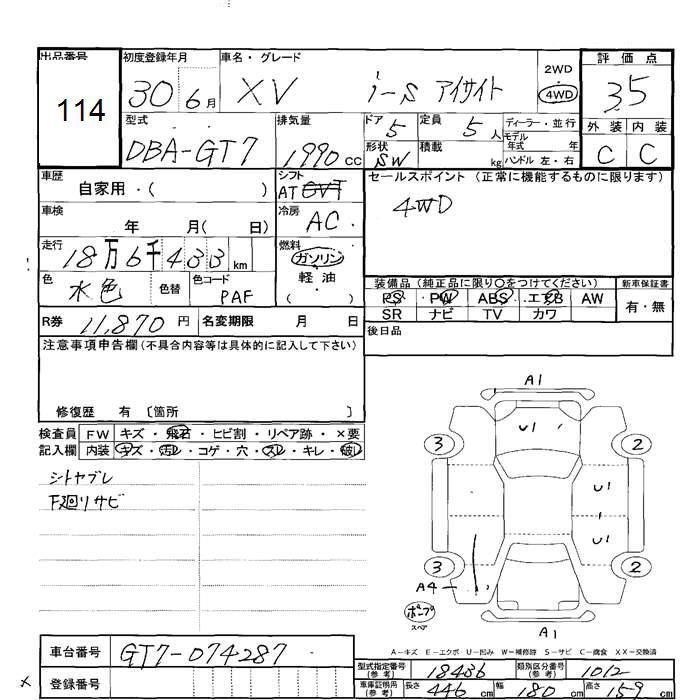 出品番号 初度登録年月 車名・グレード 2WD 評価点
114 30 6月 XV i-s アイサイト 4WD 3.5
型式 排気量 ドア 5 定員 5人 ディーラー・並行 外装 内装
DBA-GT7 1990cc 形状 SW 積載 kg モデル年式 年 ハンドル 左・右 C C
車歴 自家用・( ) シフト AT セールスポイント (正常に機能するものに限ります)
車検 年 月( 日) 冷房 AC 4WD
走行 18万6千433km 燃料 ガソリン
色 水色 色替 色コード PAF 軽油 ( ) 装備品 (純正品に限り○をつけてください) 新車保証書
PS PW ABS エアB AW 有・無
R券 11,870円 名変期限 月 日 SR ナビ TV カワ
注意事項申告欄(不具合内容等は具体的に記入して下さい) 後日品
修復歴 有 〔箇所 〕
検査員 FW キズ・飛石・ヒビ割・リペア跡・×要
記入欄 内装 キズ・汚レ・コゲ・穴・スレ・キレ・破レ
シトヤブレ
下廻リサビ
A1
U1
3 2
U1
U1
3 2
A4
スペア
A1
A-キズ E-エクボ U-凹み W-補修跡 S-サビ C-腐食 XX-交換済
車台番号 GT7-074287
型式指定番号(参考) 18486 類別区分番号(参考) 1012
登録番号 車庫証明用(参考) 長さ 446cm 幅 180cm 高さ 159cm